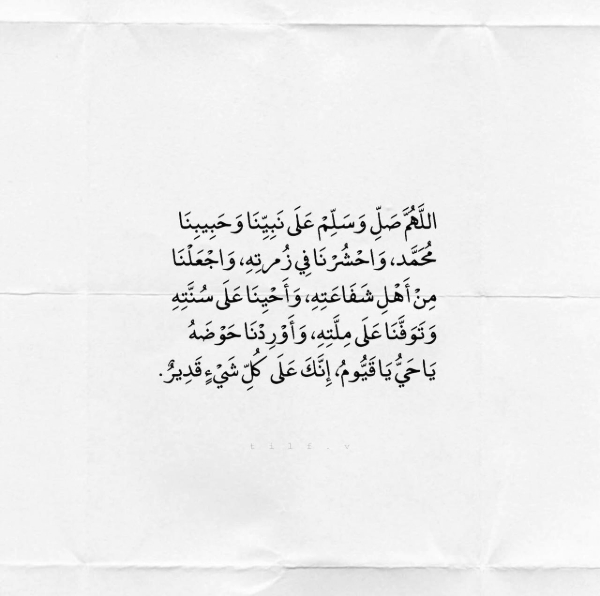 اللَّهُمَّ صَلِّ وَسَلِّمْ عَلَى نَبِيِّنَا وَحَبِيبِنَا
مُحَمَّد، وَاحْشُرْنَا فِي زُمرتِهِ، وَاجْعَلْنَا
مِنْ أَهْلِ شَفَاعَتِهِ، وَأَحْيِنَا عَلَى سُنَّتِهِ
وَتَوَفَّنَا عَلَى مِلَّتِهِ، وَأَوْرِدْنَا حَوْضَهُ
يَا حَيُّ يَا قَيُّومُ، إِنَّكَ عَلَى كُلِّ شَيْءٍ قَدِيرٌ.
t i l f . v